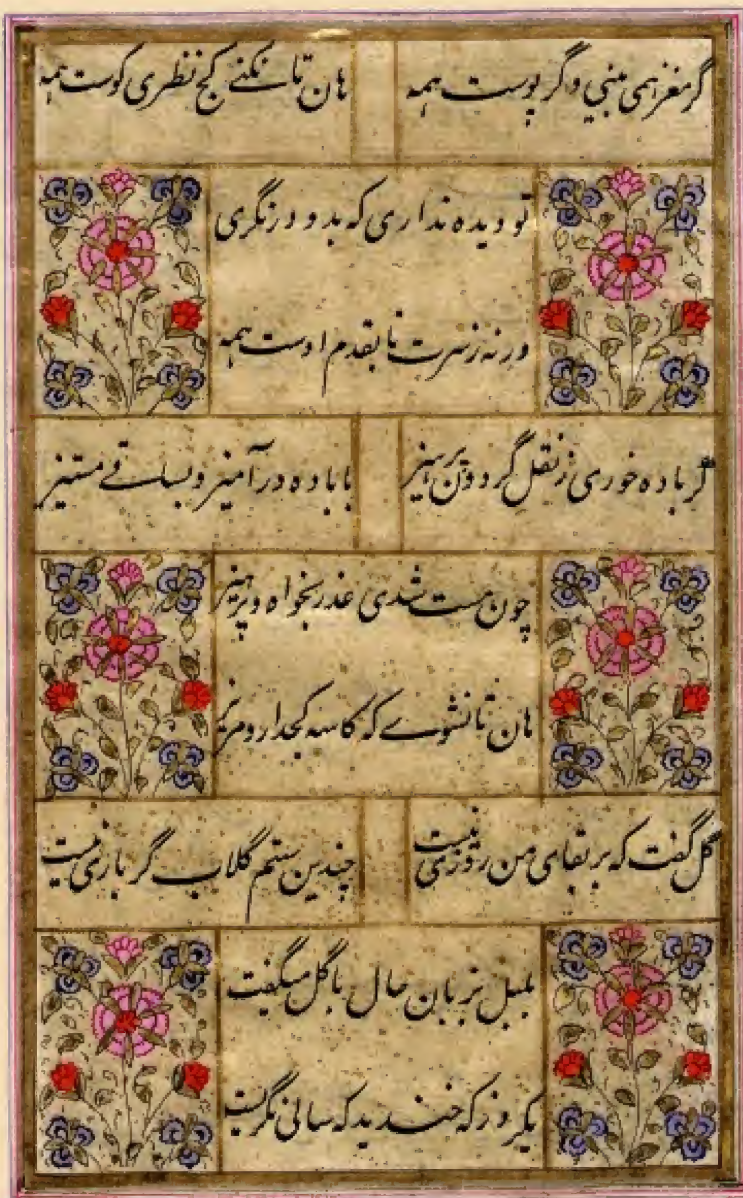 گر مغز همی بینی و گر پوست همه
هان تا نکنی کج نظری کوست همه
تو دیده نداری که بدو در نگری
ورنه ز سرت تا بقدم اوست همه
گر باده خوری ز نقل گردون پرهیز
با باده درآمیز و بساقی مستیز
چون مست شدی عذر بخواه و پرهیز
هان تا نشوی که کاسه کجدار و مریز
گل گفت که بر بقای من روزی نیست
چندین ستم گلاب گر باری چیست
بلبل بزبان حال با گل میگفت
یکروز که خندید که سالی نگریست